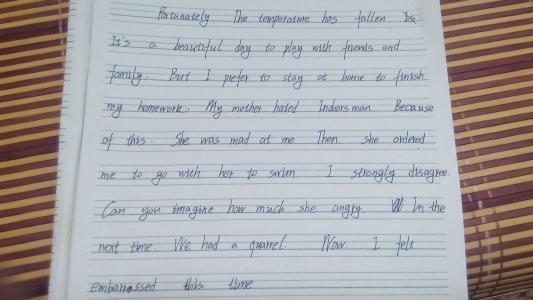 Fortunately. The temperature has fallen
It's a beautiful day to play with friends and
family. But I prefer to stay at home to finish
my homework. My mother hated Indoorsman Because
of this. She was mad at me Then. she ordered
me to go with her to swim I strongly disagree.
Can you imagine how much she angry. In the
next time. We had a quarrel. Now I felt
embarrossed this time